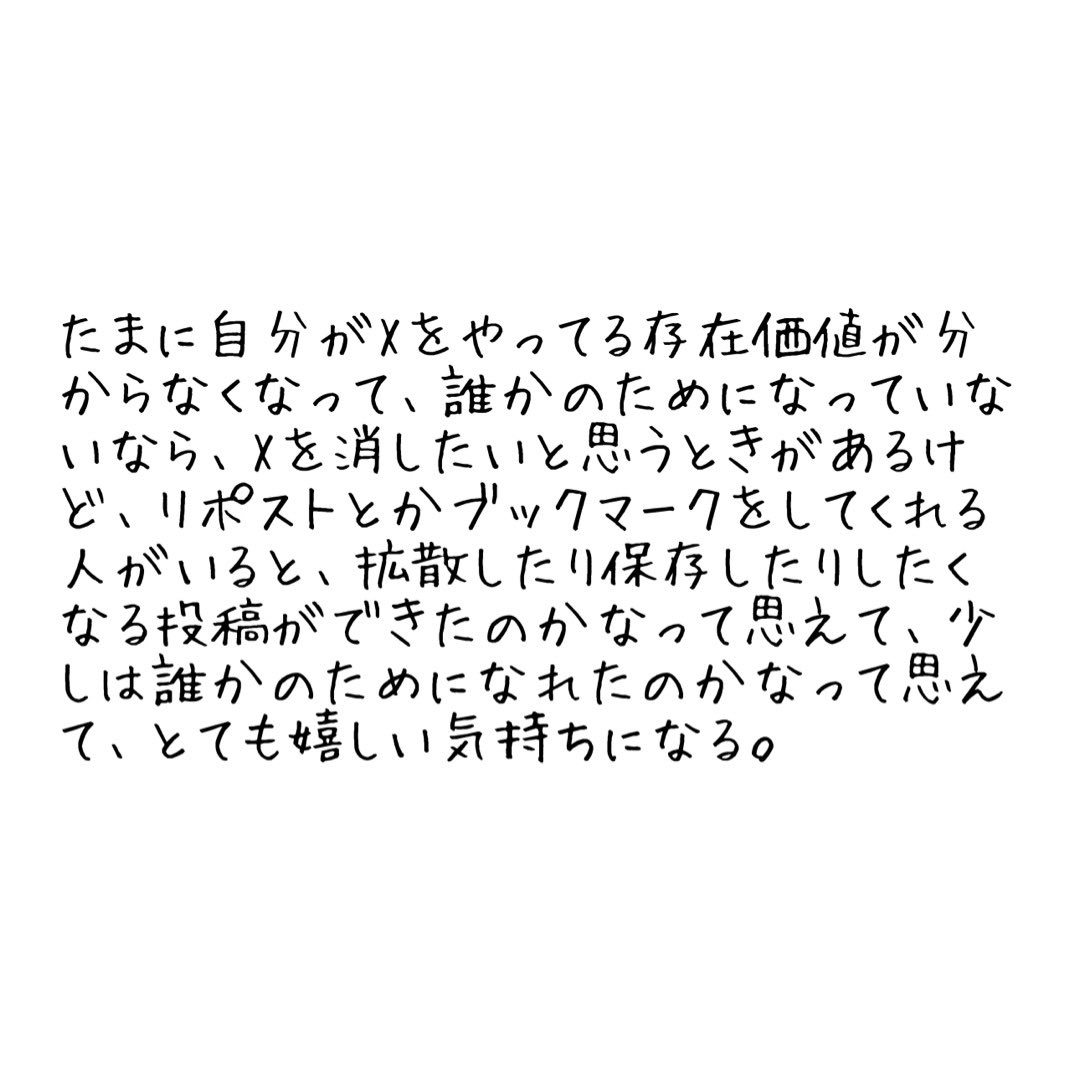 たまに自分がXをやってる存在価値が分
からなくなって、誰かのためになっていな
いなら、Xを消したいと思うときがあるけ
ど、リポストとかブックマークをしてくれる
人がいると、拡散したり保存したりしたく
なる投稿ができたのかなって思えて、少
しは誰かのためになれたのかなって思え
て、とても嬉しい気持ちになる。